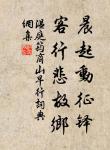 晨起動征鐸
客行悲故鄉
溫庭筠商山早行詞典
網集